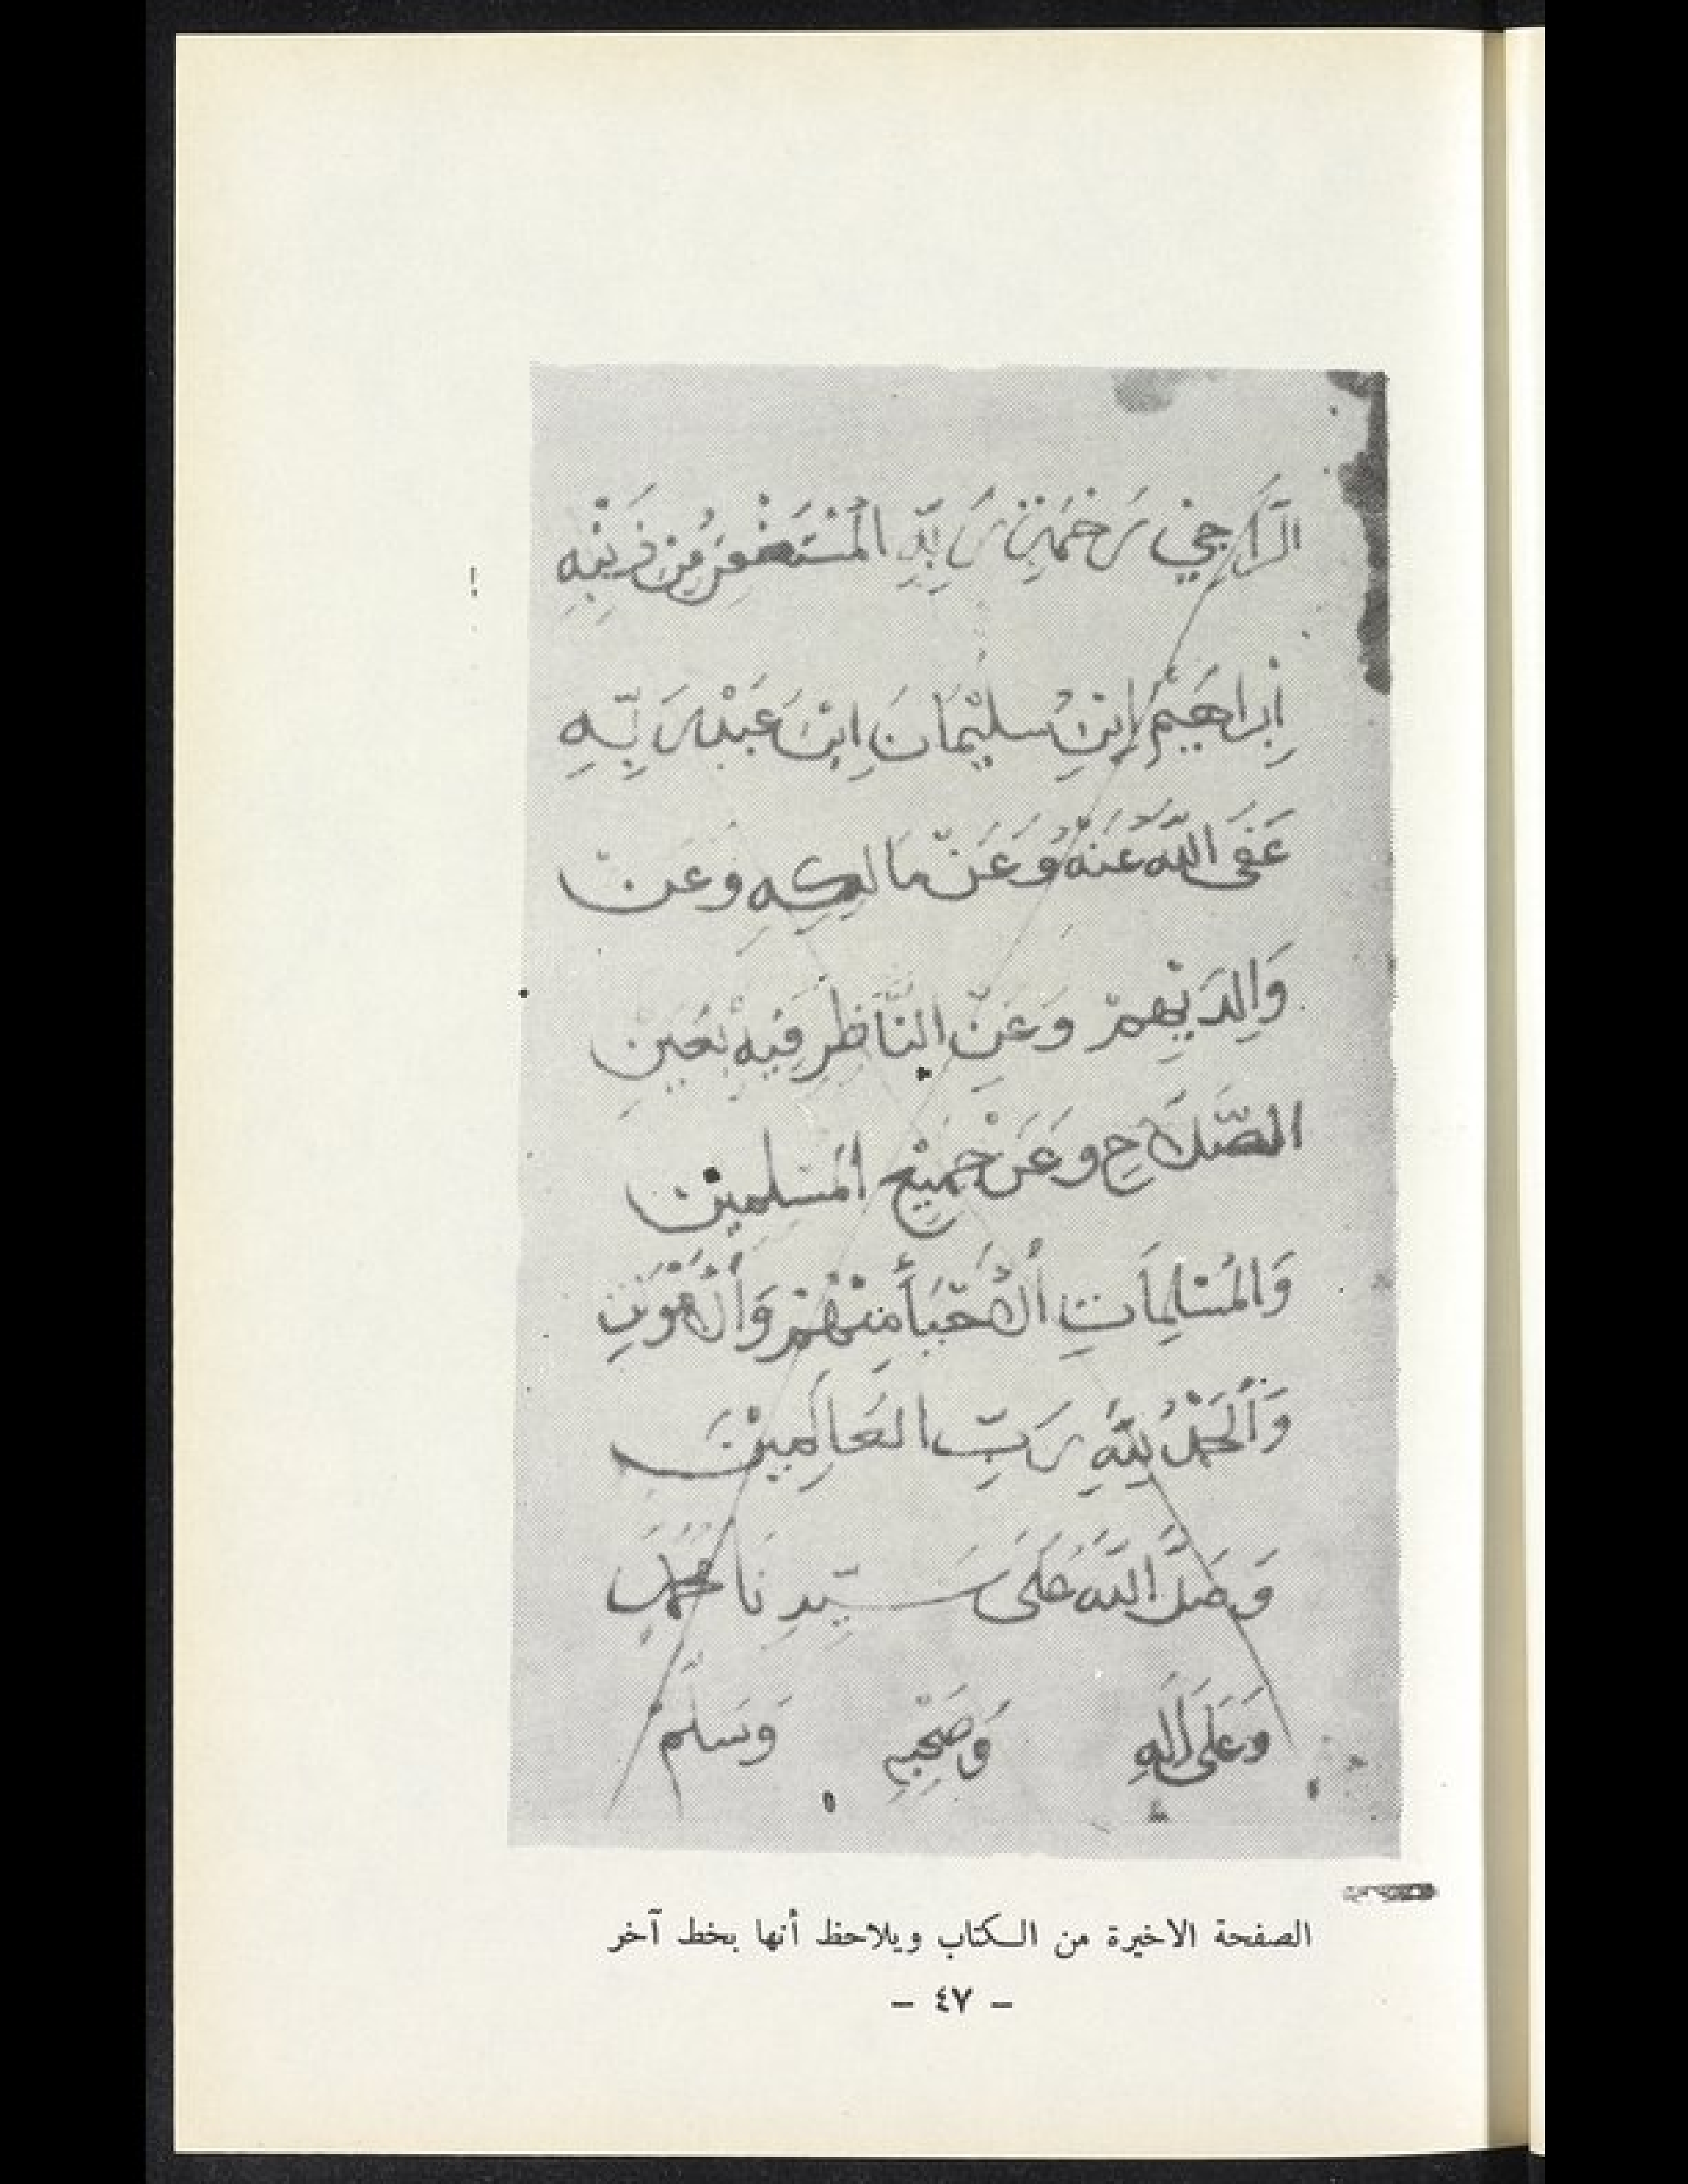 الرَّاجِي رَحْمَةَ رَبِّهِ الْمُسْتَغْفِرُ مِنْ ذَنْبِهِ
إِبْرَاهَيْمُ ابْنُ سُلَيْمَانَ ابْنَ عَبْدِ رَبِّهِ
عَفَى اللَّهُ عَنْهُ وَعَنْ مَالِكِهِ وَعَنْ
وَالِدَيْهِمْ وَعَنِ النَّاظِرِ فِيهِ بِعَيْنِ
الصَّلَاحِ وَعَنْ جَمِيْعِ الْمُسْلِمِينَ
وَالْمُسْلِمَاتِ أَلْأَحْيَاءِ مِنْهُمْ وَأَلْأَمْوَتِ
وَأَلْحَمْدُ لِلَّهِ رَبِّ الْعَالَمِيْنَ
وَصَلَّ اللَّهُ عَلَى سَيِّدِنَا مُحَمَّدٍ
وَعَلَى أَلِهِ وَصَحْبِهِ وَسَلَّمْ
الصفحة الاخيرة من الكتاب ويلاحظ أنها بخط آخر
– ٤٧ –